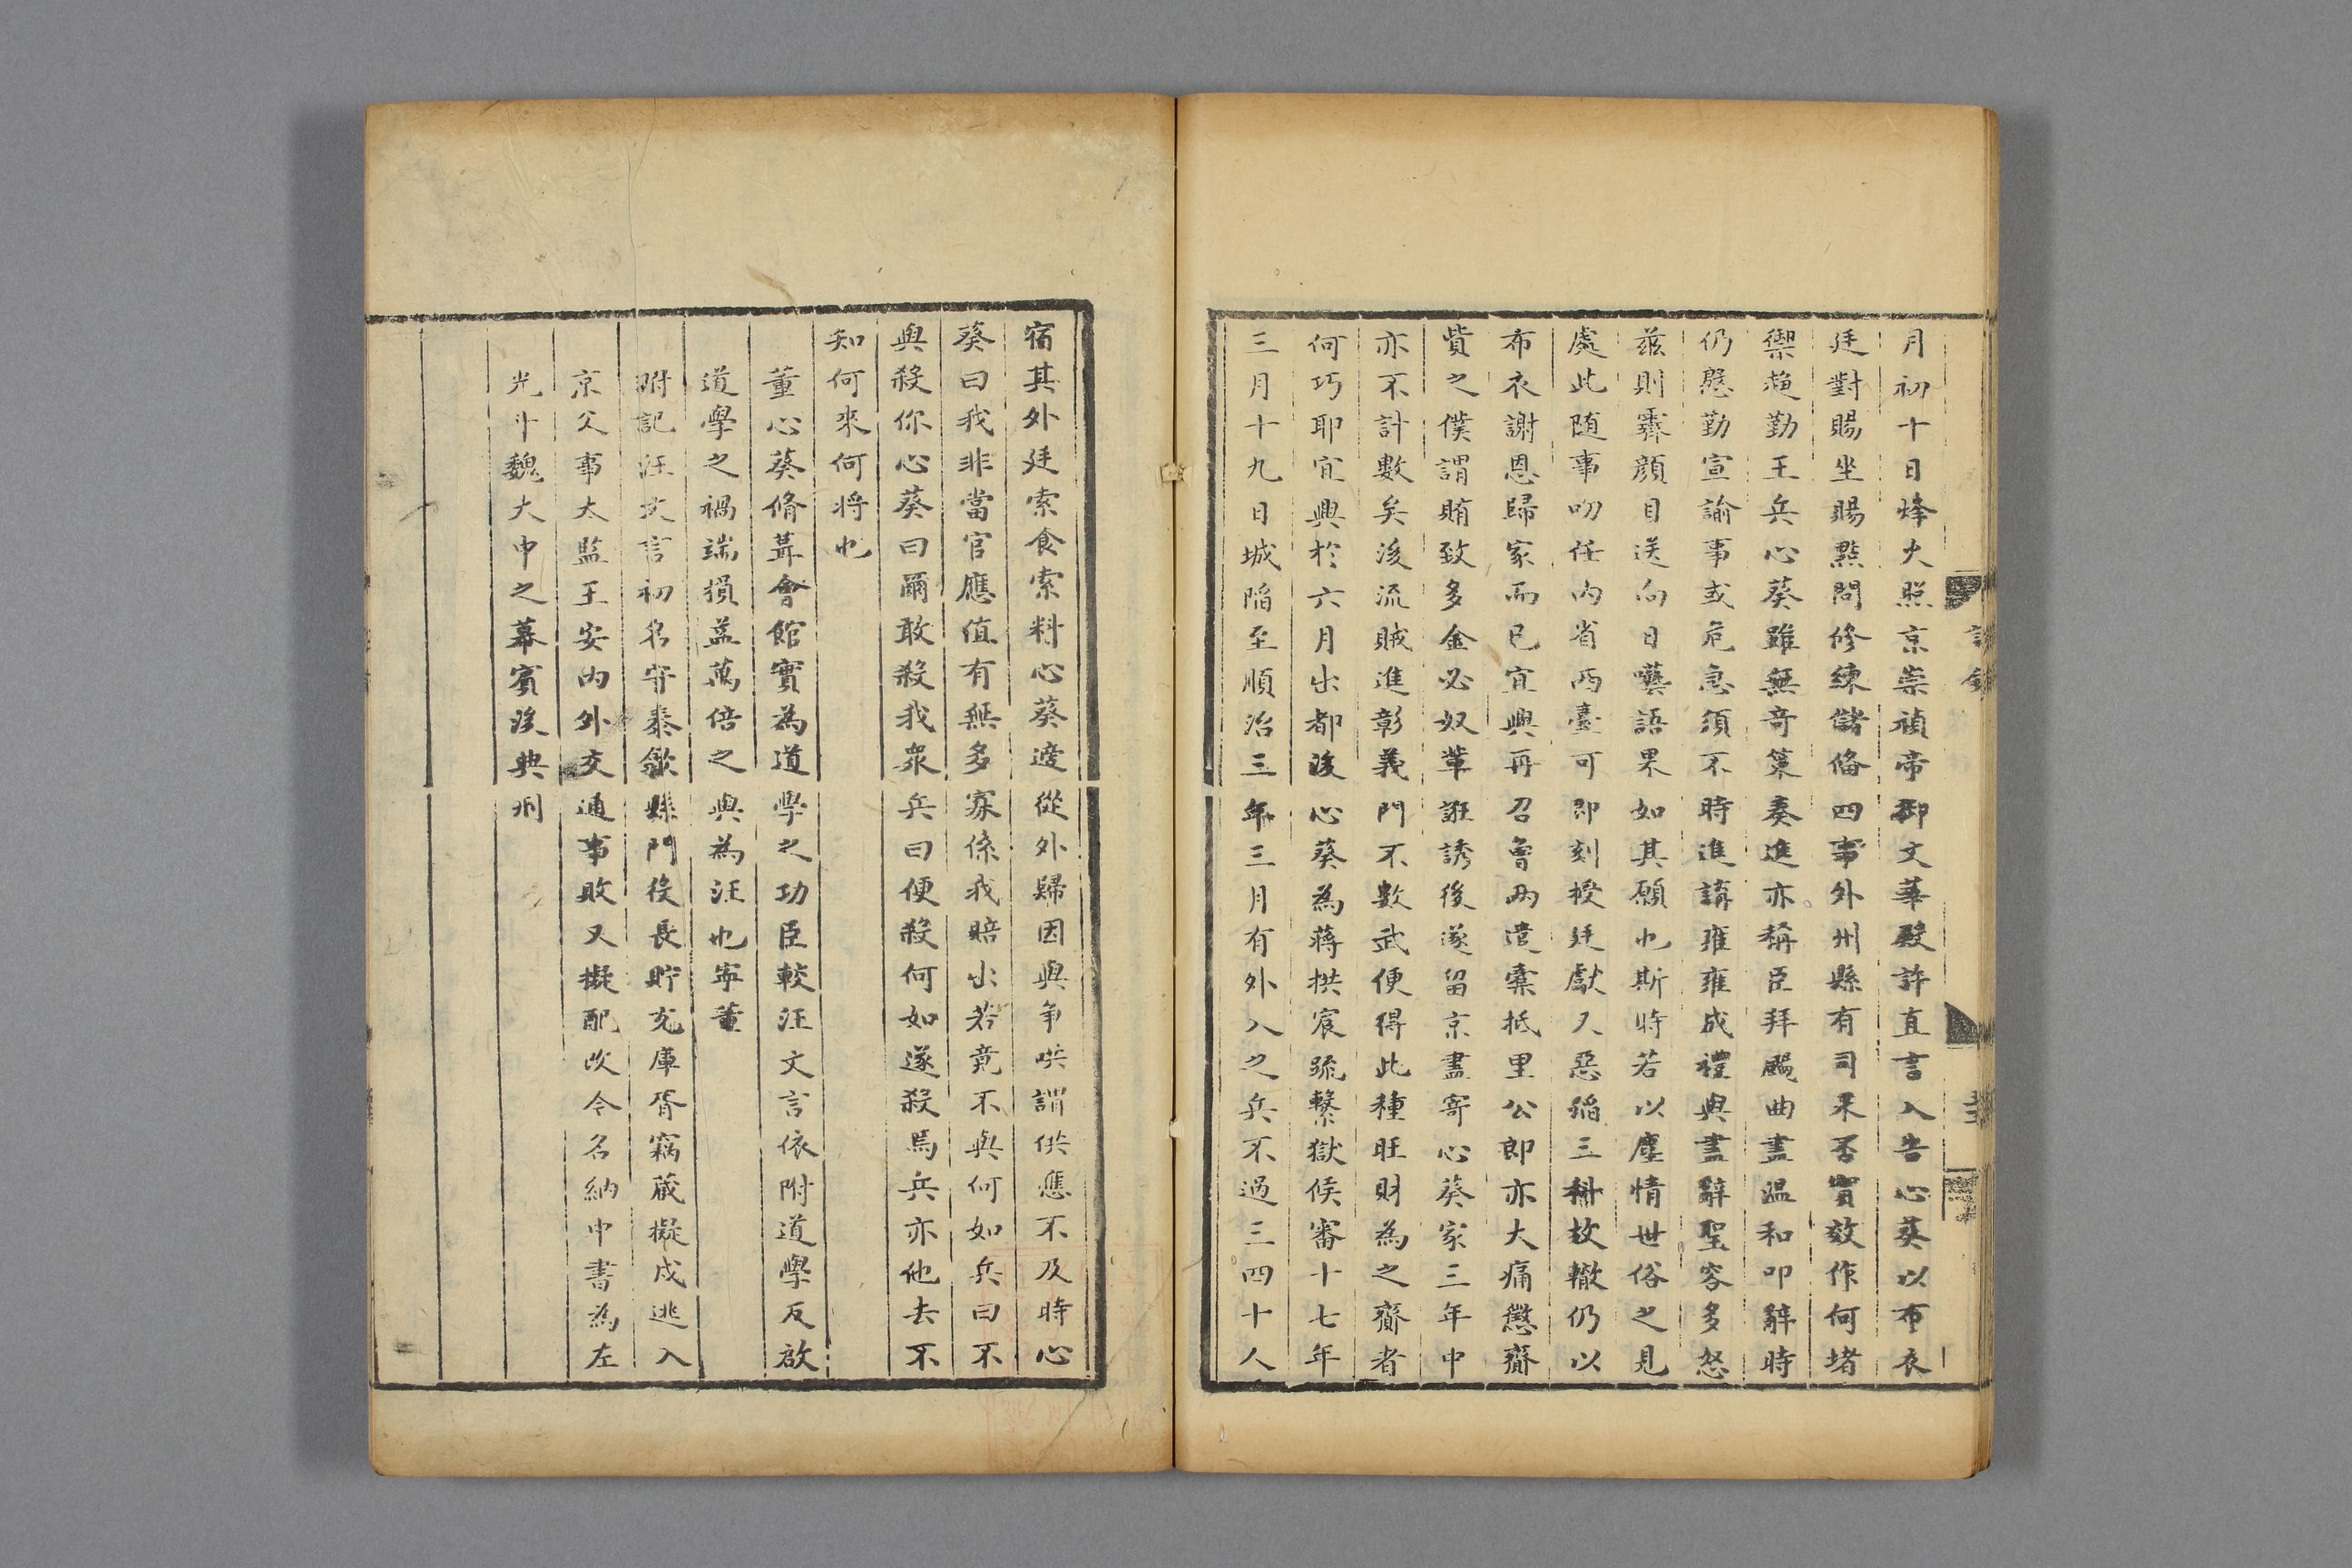 月初十日烽火照京崇禎帝御文華殿許直言入告心葵以布衣
廷對賜坐賜㸃問修練儲備四事外州縣有司果否實效作何堵
禦趨勤王兵心葵雖無奇策奏進亦稱臣拜颺曲盡温和叩辭時
仍慇勤宣諭事或危急須不時進講雍雍成禮與盡辭聖容多怒
兹則霽顔目送向日囈語果如其願也斯時若以塵情世俗之見
處此随事吻任内省西臺可即刻授廷獻又惡稲三科故轍仍以
布衣謝恩歸家而已宜興再召魯兩遣橐抵里公郎亦大痛懲齎
貲之僕謂賄致多金必奴輩誑誘後遂留京盡寄心葵家三年中
亦不計數矣後流賊進彰義門不數武便得此種旺財為之齎者
何巧耶宜興於六月出都後心葵為蔣拱宸疏繫獄候審十七年
三月十九日城陷至順治三年三月有外入之兵不過三四十人
宿其外廷索食索料心葵適從外歸因與争哄謂供應不及時心
葵曰我非當官應值有無多寡係我賠出若竟不與何如兵曰不
與殺你心葵曰爾敢殺我衆兵曰便殺何如遂殺焉兵亦他去不
知何來何將也
董心葵脩葺會館實為道學之功臣較汪文言依附道學反啟
道學之禍端損益萬倍之與為汪也寧董
附記汪文言初名守泰歙縣門役長貯充庫胥竊藏擬戍逃入
京父事太監王安内外交通事敗又擬配改今名納中書為左
光斗魏大中之幕賓後典刑